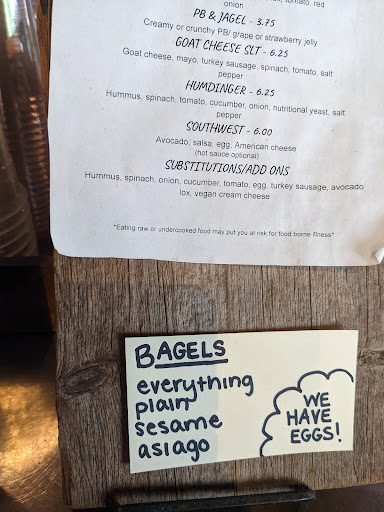 tomato, red
onion
PB & JAGEL - 3.75
Creamy or crunchy PB/ grape or strawberry jelly
GOAT CHEESE SLT - 6.25
Goat cheese, mayo, turkey sausage, spinach, tomato, salt
pepper
HUMDINGER - 6.25
Hummus, spinach, tomato, cucumber, onion, nutritional yeast, salt
pepper
SOUTHWEST - 6.00
Avocado, salsa, egg, American cheese
(hot sauce optional)
SUBSTITUTIONS/ADD ONS
Hummus, spinach, onion, cucumber, tomato, egg, turkey sausage, avocado
lox, vegan cream cheese
*Eating raw or undercooked food may put you at risk for food borne illness*
BAGELS
everything
plain
sesame
asiago
WE
HAVE
EGGS!